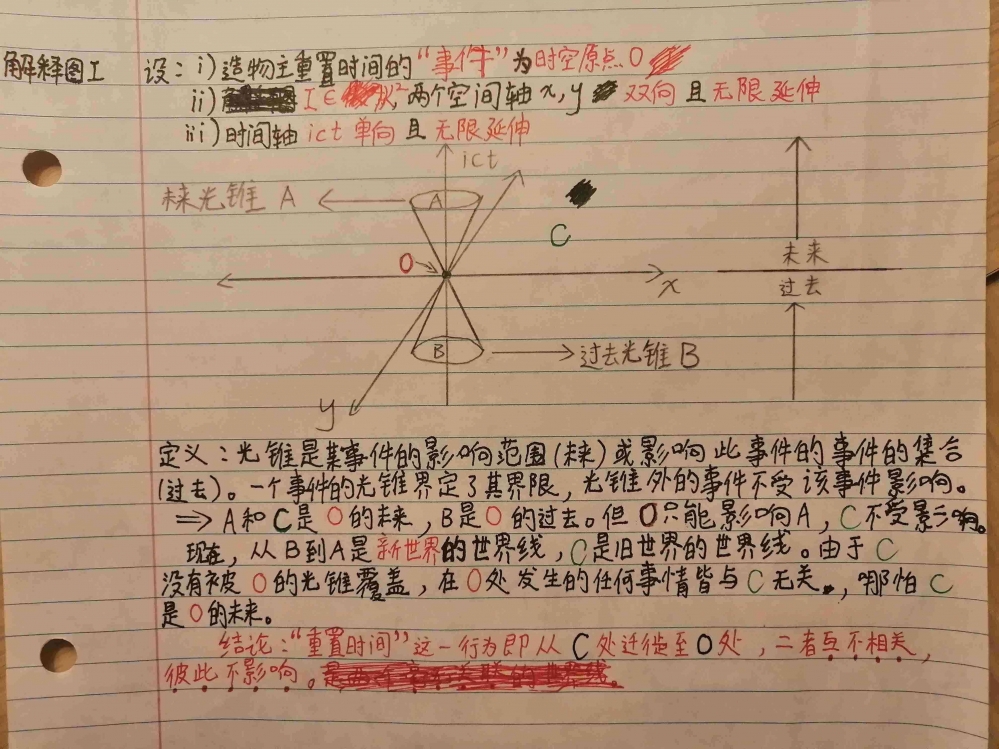 解释图I 设：i）造物主重置时间的“事件”为时空原点O
ii） I∈ℝ², 两个空间轴x,y 双向 且 无限延伸
iii）时间轴 ict 单向 且 无限延伸
ict
未来光锥 A
A
C
O
x
未来
过去
B
过去光锥 B
y
定义：光锥是某事件的影响范围(未来)或影响此事件的事件的集合
(过去)。一个事件的光锥界定了其界限，光锥外的事件不受该事件影响。
⇒ A和C是O的未来，B是O的过去。但O只能影响A，C不受影响。
现在，从B到A是新世界的世界线，C是旧世界的世界线。由于C
没有被O的光锥覆盖，在O处发生的任何事情皆与C无关，哪怕C
是O的未来。
结论：“重置时间”这一行为即从C处迁徙至O处，二者互不相关，
彼此不影响。